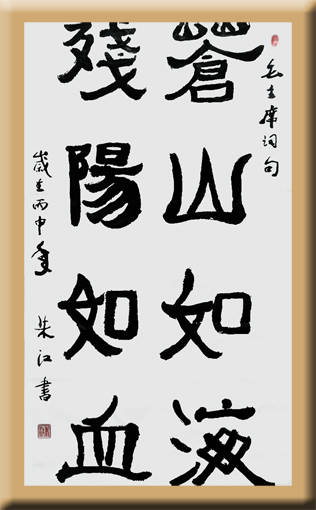 毛主席词句
蒼山如海
殘陽如血
歲在丙申年
朱江書